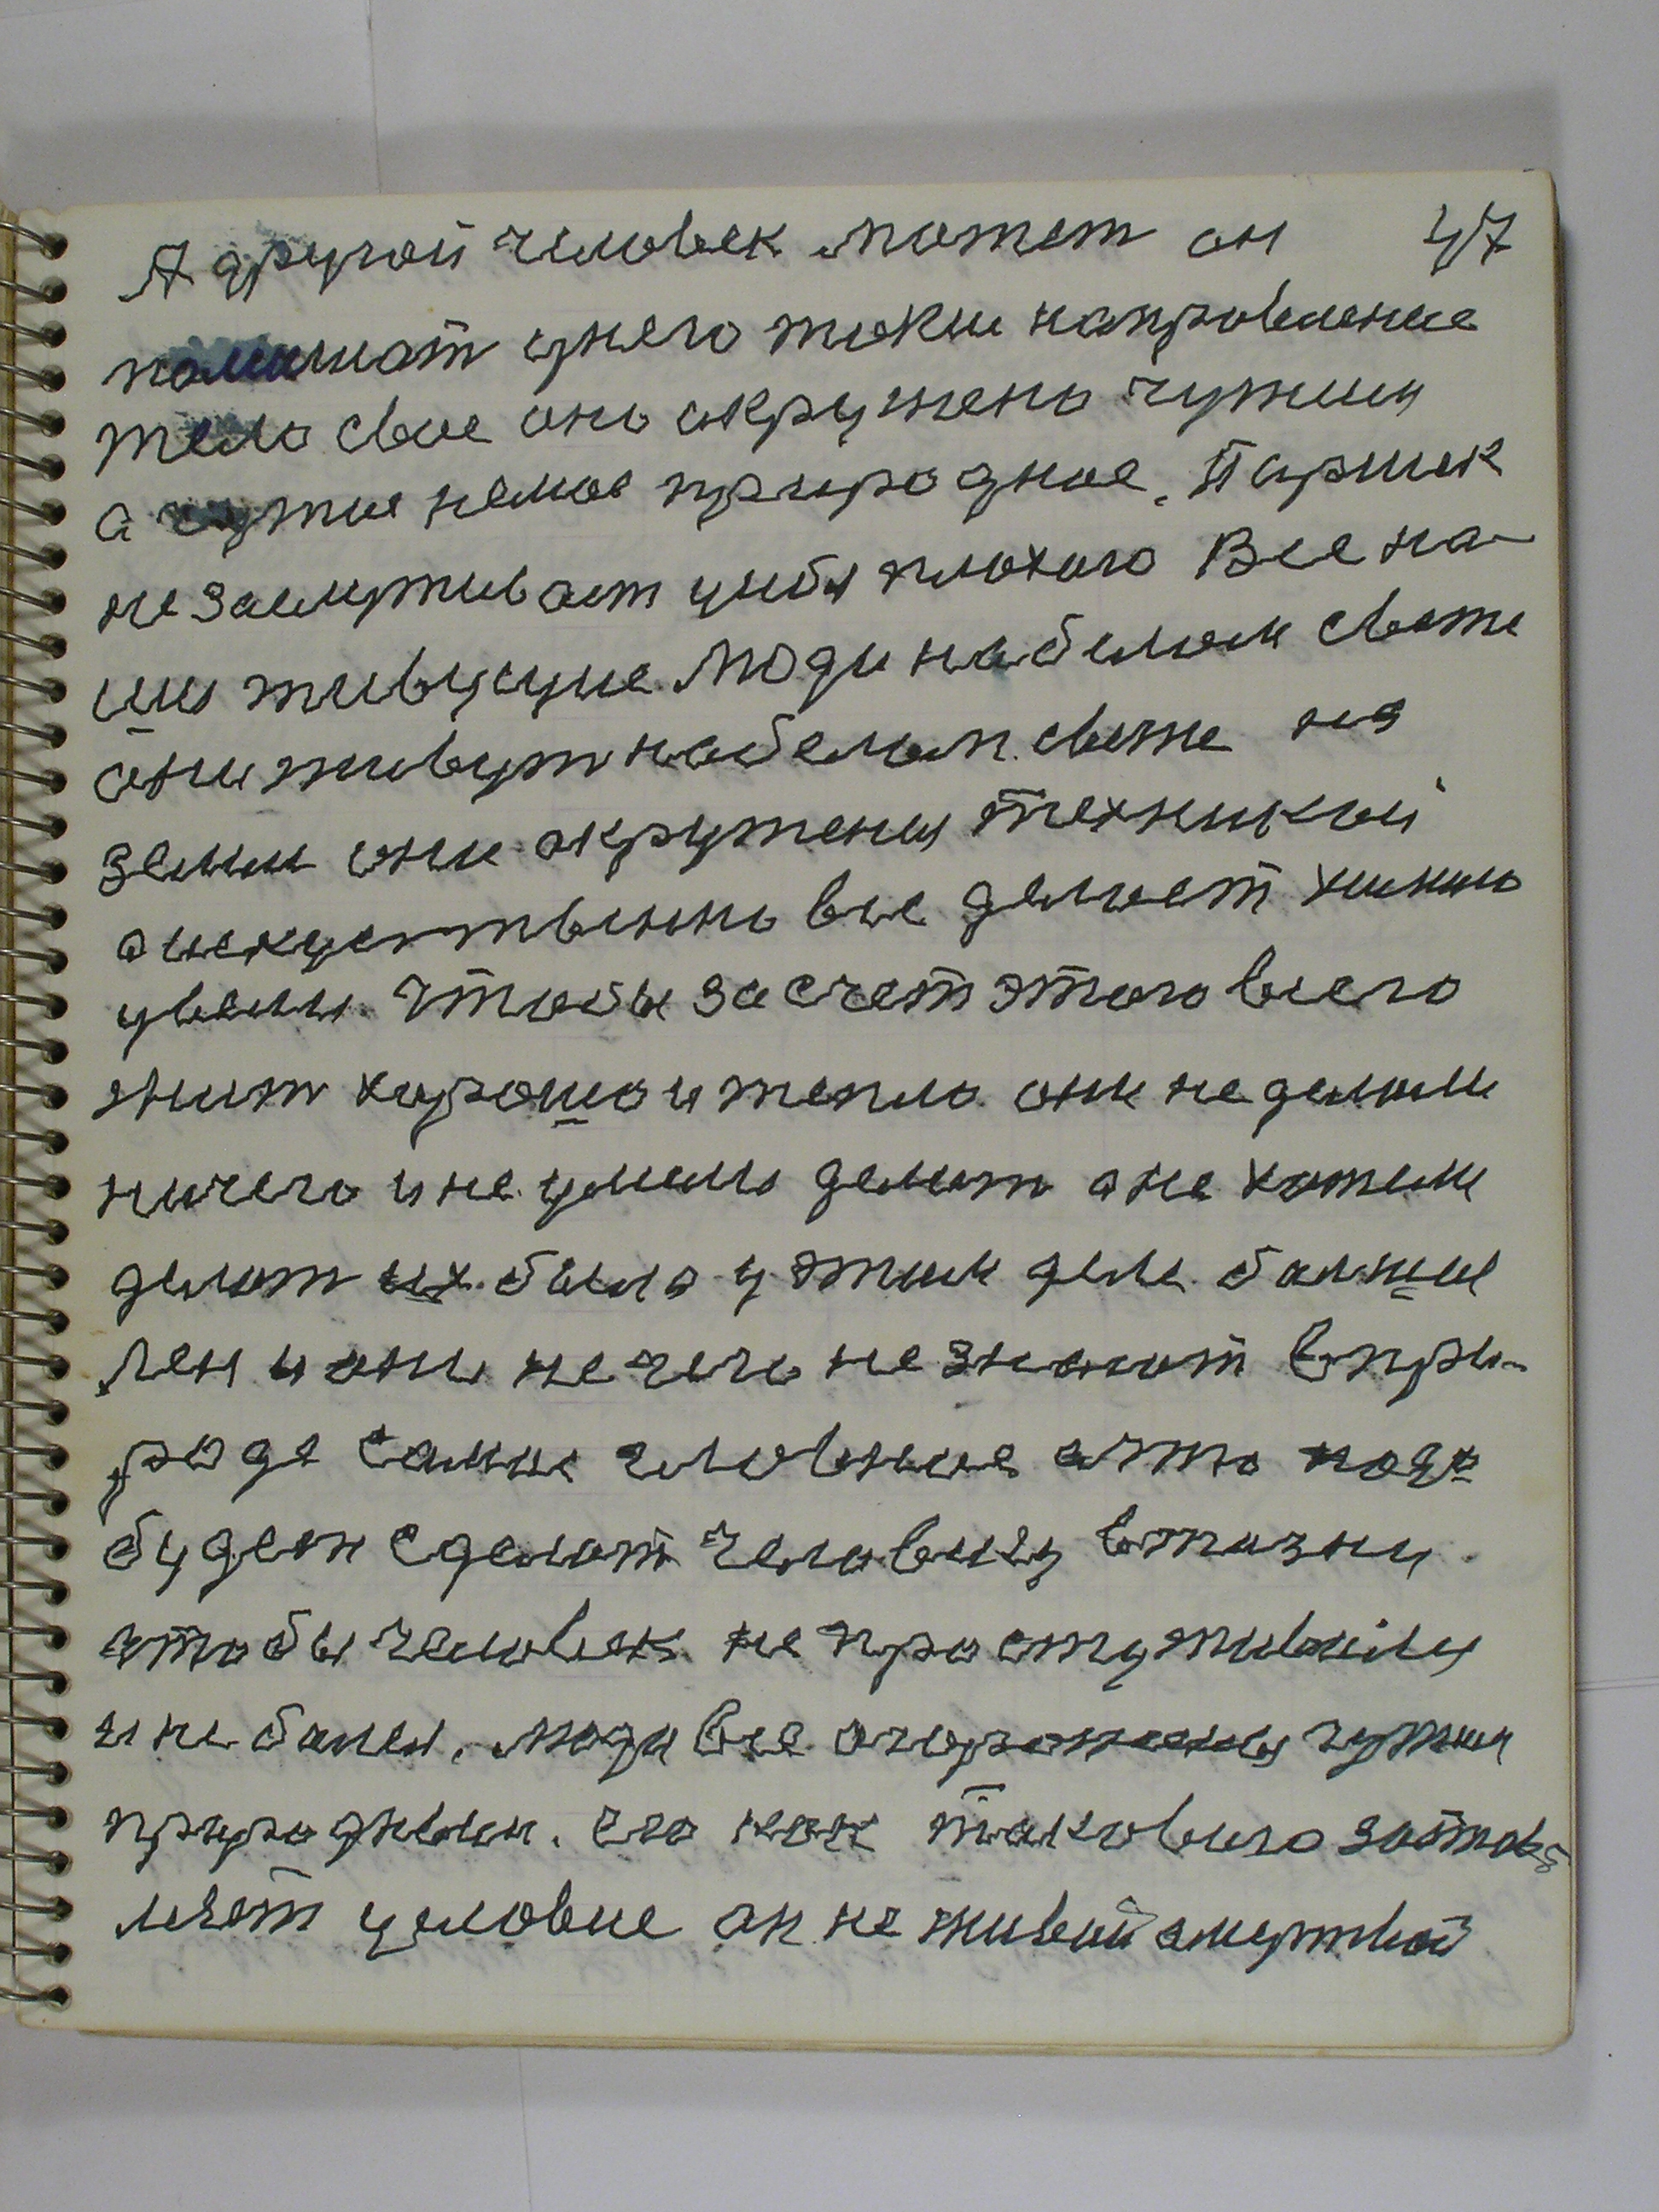 А другой человек может он 47
помешат унего токие направление
тело свое оно окружено чужим
а чужие немое природное. Паршек
не заслуживает уибя плохого Все на-
ши живущие люди на белом свете
они живут на белом свете на
земли они окружены техникой
а искуственно все делает химию
увели. Чтобы за счет этого всего
жит хорошо и тепло. они не делали
ничего и не умели делат а не хотели
делат их было у этим деле. болше
лен и они не чего не знают в при-
роде самые главные а что надо
будет сделат человеку в жизни.
чтобы человек не простуживался
и не болел. люди все огорожены чужим
природным. его как таковыго заставь
ляет условие он не живой а мертвой